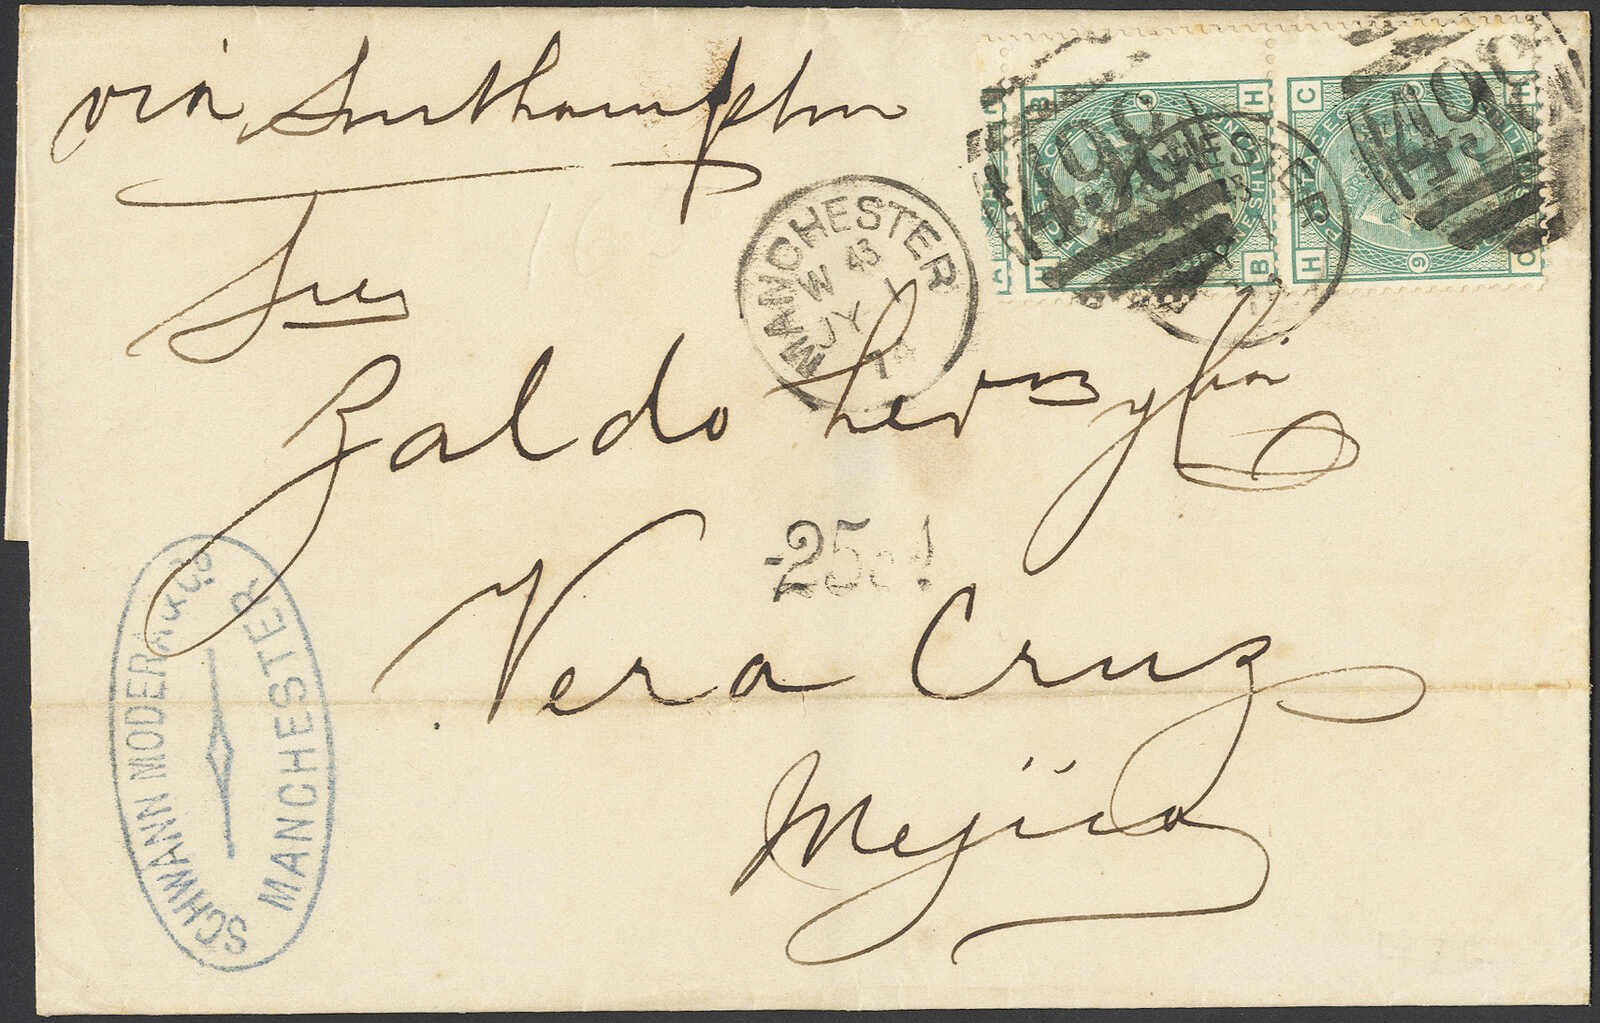 via Southampton
MANCHESTER
W 43
JY 1
74
498
498
B H
H B
C H
H C
9
Zaldo herms y Cia
25 c
Vera Cruz
Mejico
SCHWANN MODERA & CO
MANCHESTER